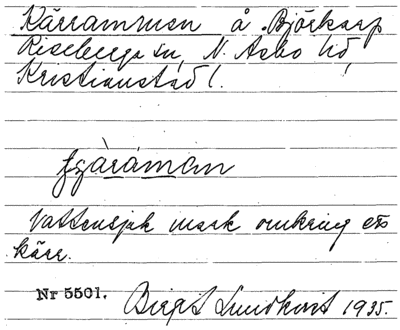 Kärrammen å Björkarp
Riseberga sn, N. Åsbo hd,
Kristianstad l.
Vattensjuk mark omkring ett
kärr.
Nr 5501. Birgit Sundkvist 1935.